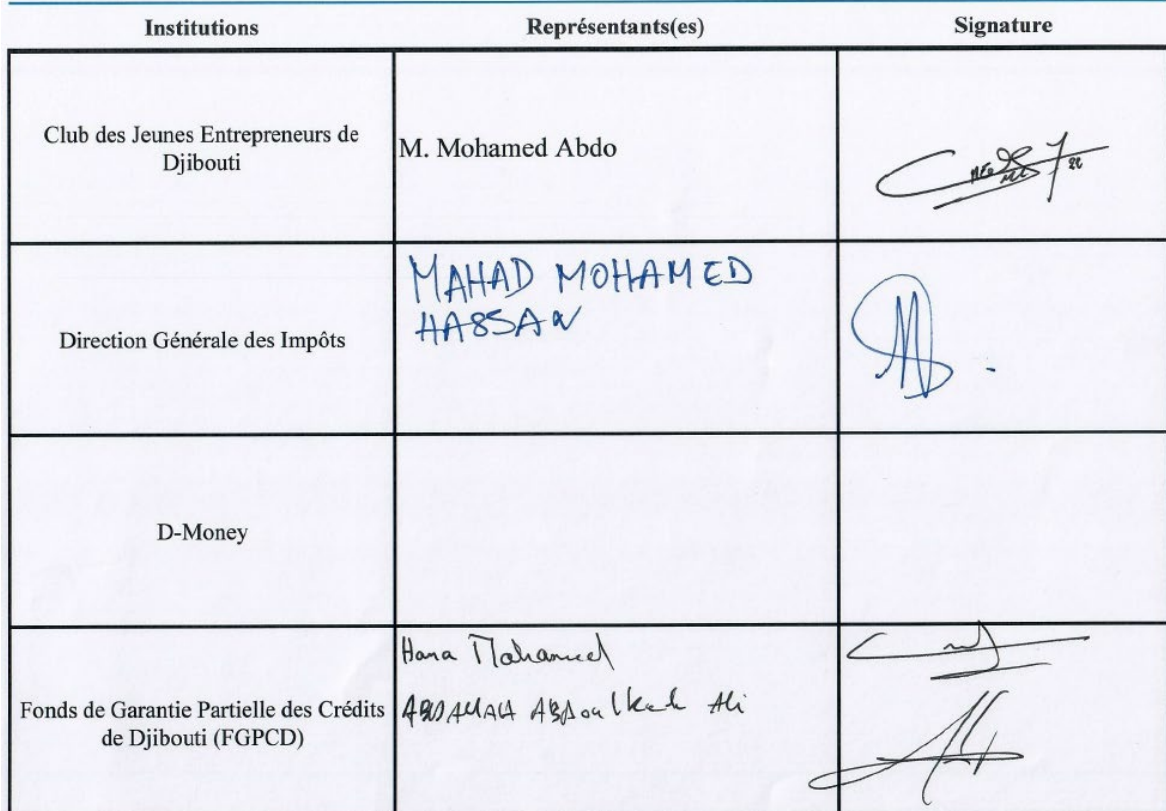 Institutions Représentants(es) Signature
Club des Jeunes Entrepreneurs de
Djibouti
M. Mohamed Abdo
Direction Générale des Impôts
MAHAD MOHAMED
HASSAN
D-Money
Fonds de Garantie Partielle des Crédits
de Djibouti (FGPCD)
Hana Mohamed
ABDALLAH Ali